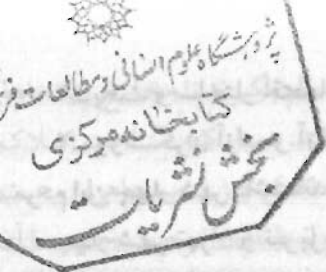 پژوهشگاه علوم انسانی و مطالعات فر
کتابخانه مرکزی
بخش نشریات